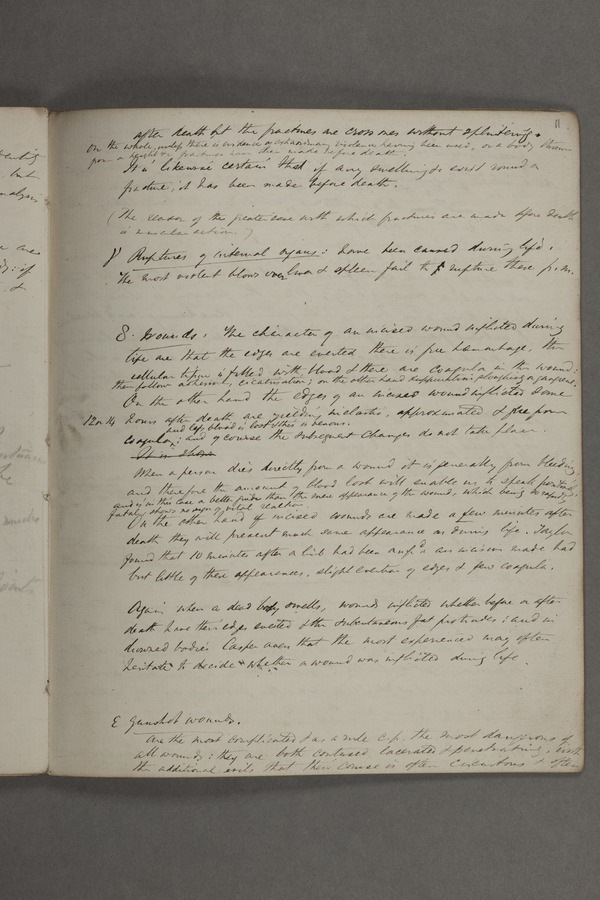 11
after death but the fractures are cross ones without splintering.
on the whole, unless there is evidence of extraordinary violence having been used, or a body thrown
from a height
It is likewise certain that if any swelling exist round a
fracture, it has been made before death.
(The reason of the greater ease with which fractures are made before death
is muscular action.)
γ Ruptures of internal organs: have been caused during life.
The most violent blows over liver & spleen fail to rupture these p. m.
δ. Wounds. The characters of an incised wound inflicted during
life are that the edges are everted there is free hæmorrhage, the
cellular tissue is filled with blood & there are coagula in the wound:
then follow adhesions, cicatrisation; on the other hand suppuration sloughing or gangrene.
On the other hand the edges of an incised wound inflicted some
12 or 14 hours after death are yielding inelastic, approximated & free from
and less blood is lost & this is venous.
coagula; and of course the subsequent changes do not take place.
It is shown
When a person dies directly from a wound it is generally from bleeding
and therefore the amount of blood lost will enable us to speak positively
and is in this case a better guide than the mere appearance of the wound, which being so rapidly
fatal shows no sign of vital reaction.
On the other hand if incised wounds are made a few minutes after
death they will present much same appearance as during life. Taylor
found that 10 minutes after a limb had been amp.d an incision made had
but little of these appearances, slight eversion of edges & few coagula.
Again when a dead body swells, wounds inflicted whether before or after
death have their edges everted & the subcutaneous fat protrudes: and in
drowned bodies Casper avers that the most experienced may often
hesitate to decide whether a wound was inflicted during life.
ε Gunshot wounds.
Are the most complicated & as a rule c.p. the most dangerous of
all wounds: they are both contused lacerated & penetrating, with
the additional evils that their course is often circuitous & often